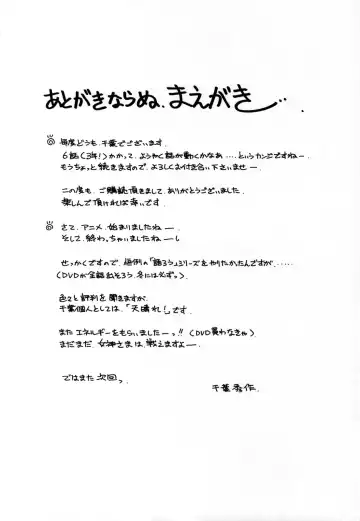 あとがきならぬ、まえがき….
毎度どうも、千葉でございます.
6話(3年!)かかって、ようやく話が動くかなあ....というカンジですねー.
もうちょっと続きますので、よろしくお付き合い下さいませー.
この度も、ご購読頂きまして、ありがとうございました.
楽しんで頂ければ幸いです.
さて、アニメ、始まりましたねー.
そして、終わっちゃいましたねーし
せっかくですので、恒例の「語ろう」シリーズをやりたかったんですが、.....
(DVDが全話出そろう、冬には必ずっ.)
色々と評判を聞きますが、
千葉個人としては、「天晴れ!」です.
またエネルギーをもらいましたーっ!!(DVD買わなきゃ)
まだまだ、女神さまは、戦えますよー.
ではまた次回っ.
千葉秀作.